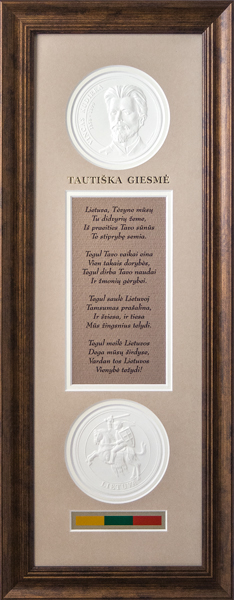 TAUTIŠKA GIESMĖ
Lietuva, Tėvyne mūsų
Tu didvyrių žeme,
Iš praeities Tavo sūnūs
Te stiprybę semia.
Tegul Tavo vaikai eina
Vien takais dorybės,
Tegul dirba Tavo naudai
Ir žmonių gėrybei.
Tegul saulė Lietuvoj
Tamsumas prašalina,
Ir šviesa, ir tiesa
Mūs žingsnius telydi.
Tegul meilė Lietuvos
Dega mūsų širdyse,
Vardan tos Lietuvos
Vienybė težydi!
LIETUVA